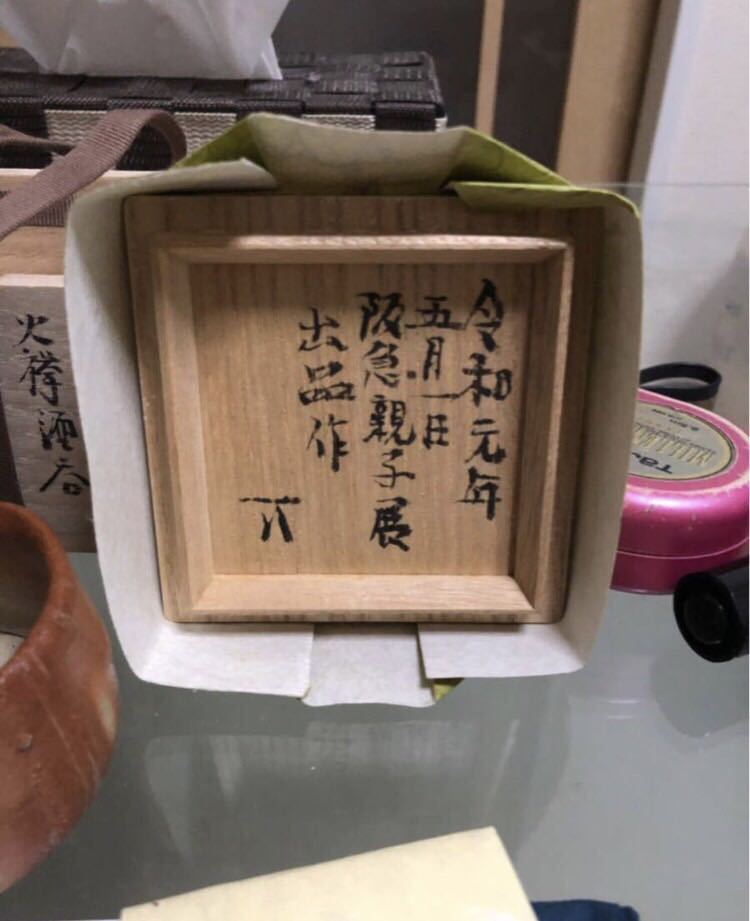 令和元年
五月一日
阪急親子展
出品作
火襷酒呑